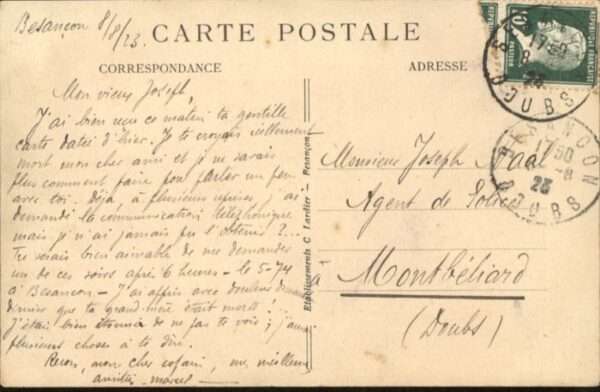 Besançon 8/8/23.
CARTE POSTALE
CORRESPONDANCE
ADRESSE
Mon vieux Joseph,
J'ai bien reçu ce matin ta gentille
carte datée d'hier. Je te croyais réellement
mort mon cher ami et je ne savais
plus comment faire pour parler un peu
avec toi. Déjà, à plusieurs reprises j'ai
demandé la communication téléphonique
mais je n'ai jamais pu l'obtenir ?..
Tu serais bien aimable de me demander
un de ces soirs après 6 heures - le 5-74
à Besançon - J'ai appris avec douleur
dernier que ta grand-mère était morte !
J'étais bien étonné de ne pas te voir ; j'aurais
plusieurs choses à te dire.
Reçois, mon cher copain, mes meilleures
amitiés - Marcel -
Etablissements C. Lardier - Besançon
Monsieur Joseph
Agent de Police
à
Montbéliard
(Doubs)
REPUBLIQUE FRANÇAISE
POSTES
10
BESANÇON
17 50
8
23
DOUBS
BESANÇON
17 50
-8
23
DOUBS